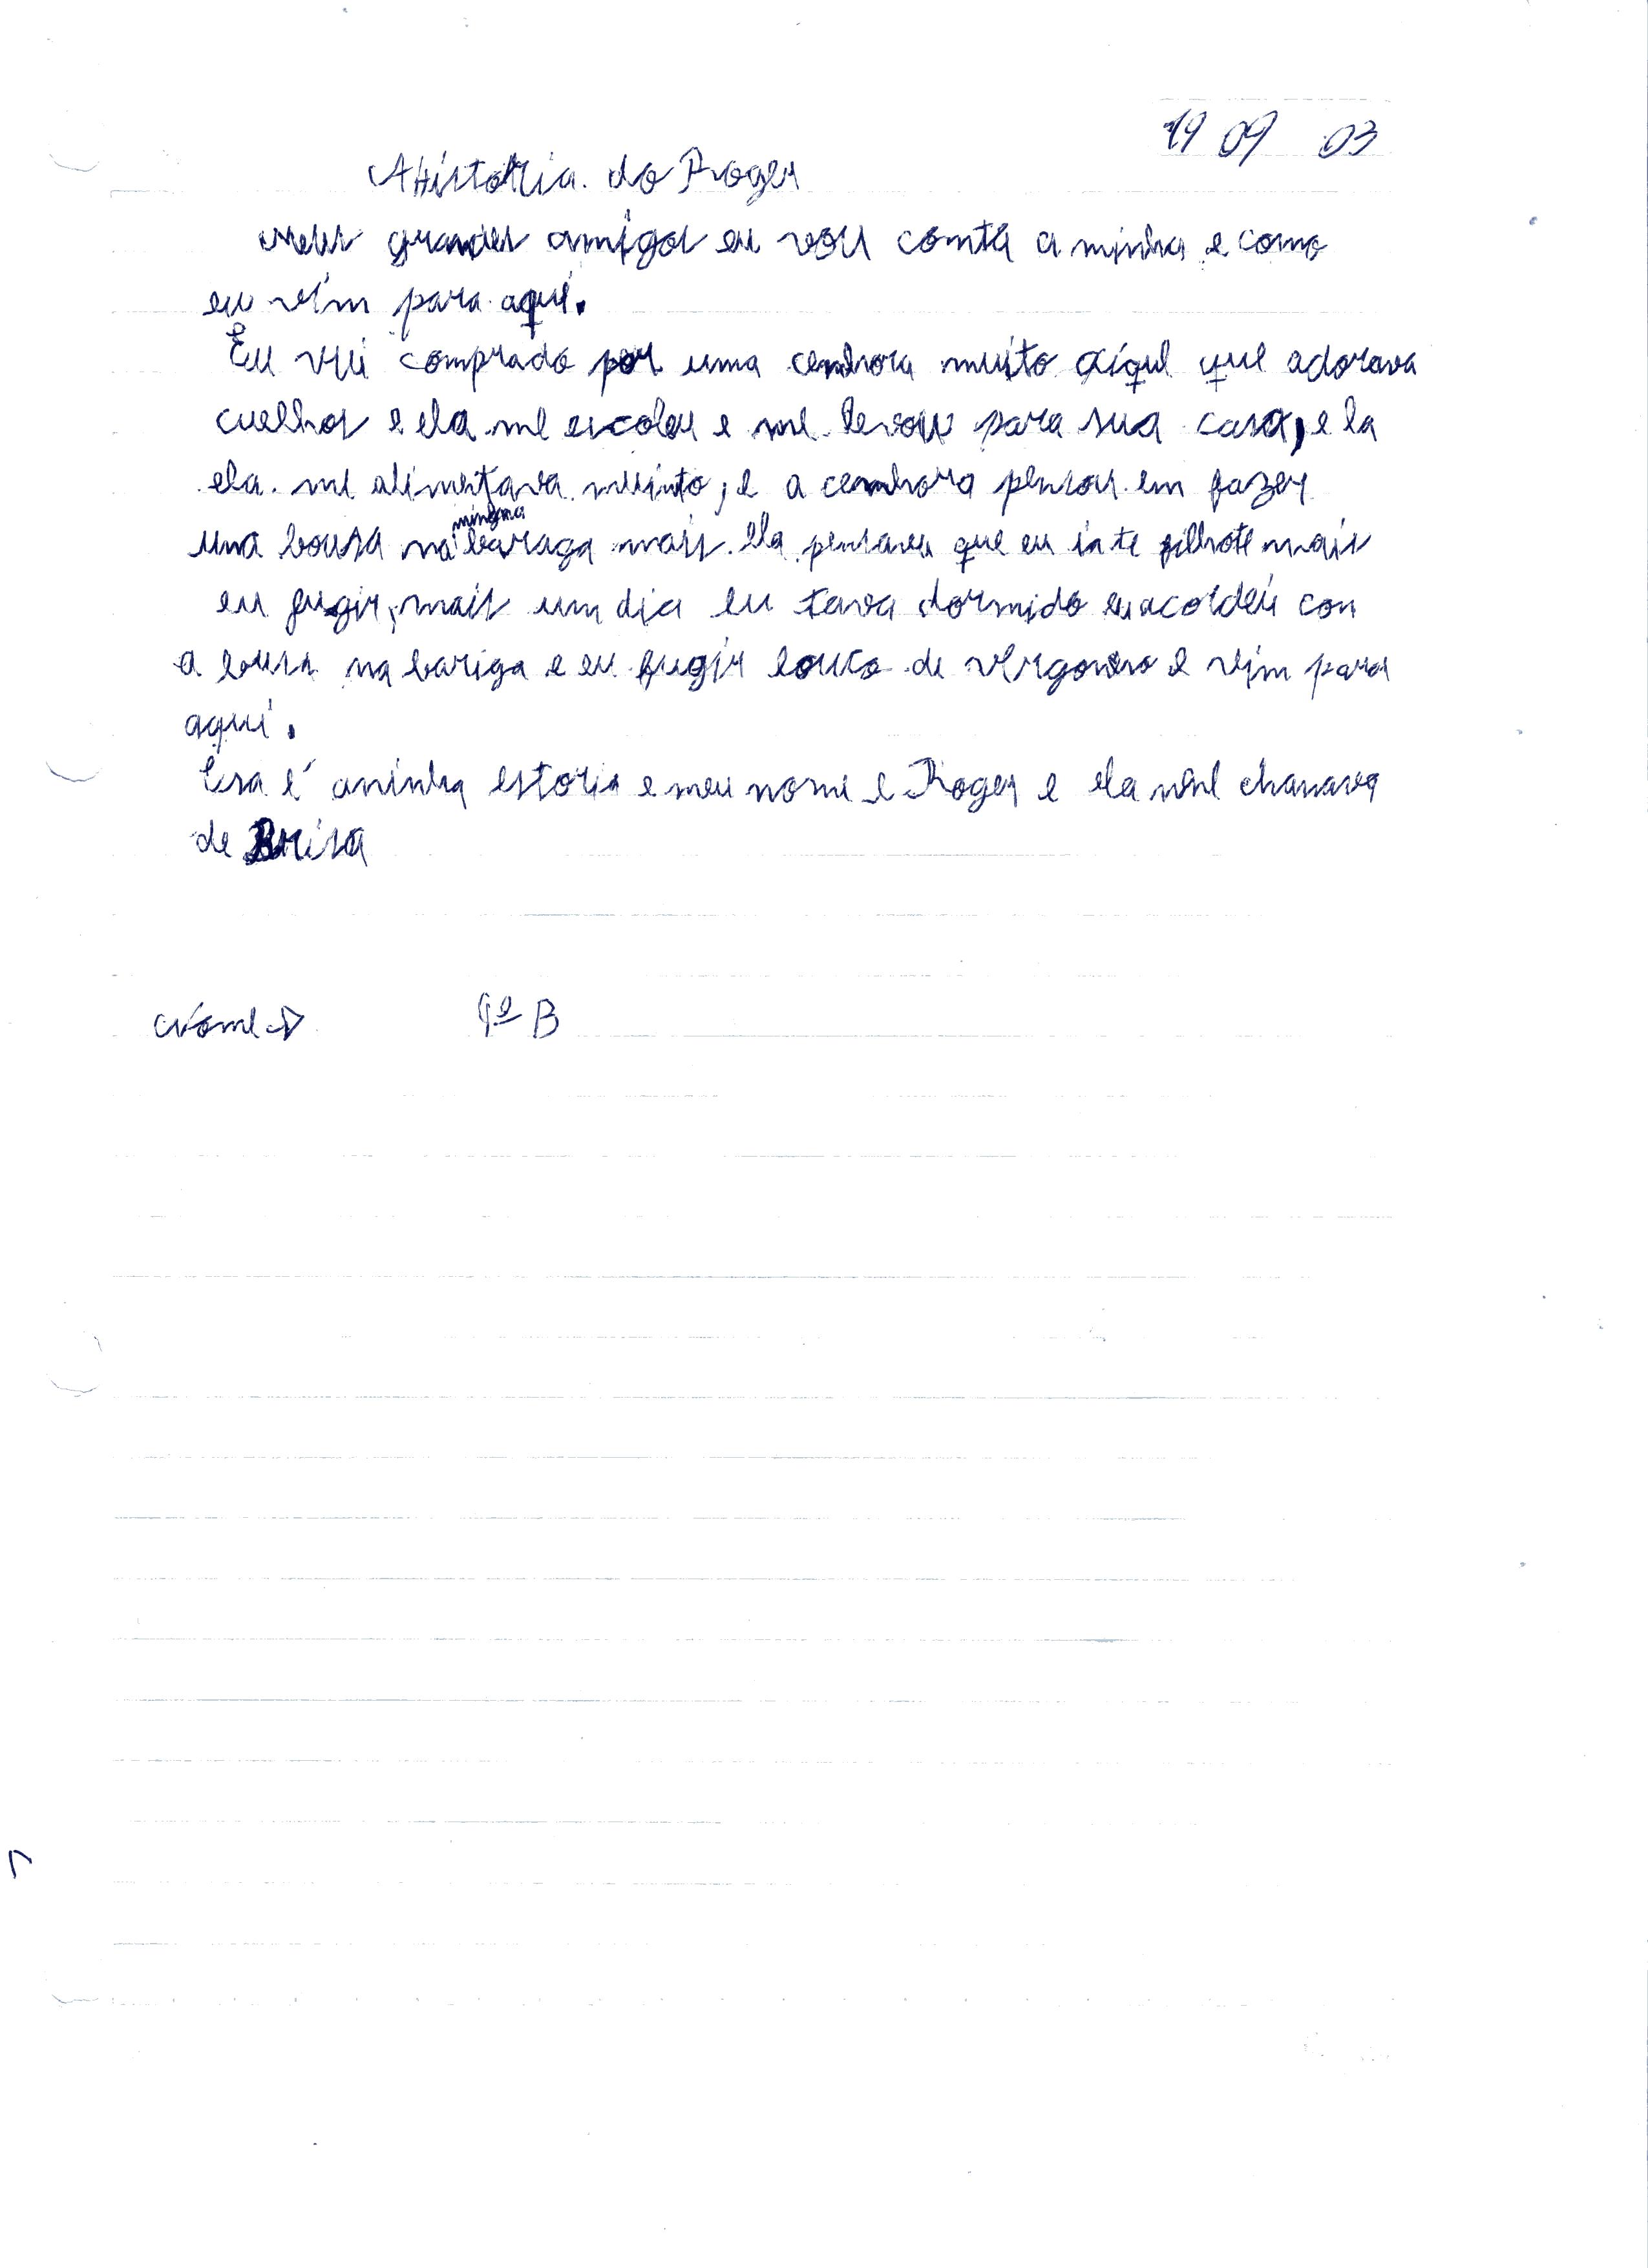 19 09 03
A História do Roger
meus grandes amigos eu vou conta a minha e como
eu vim para aqui.
Eu vui comprado por uma cenhora muito xíque que adorava
cuelhos e ela me escoleu e me levou para sua casa, e la
ela me alimentava muinto, e a cenhora pensou em fazer
uma bousa na minhna baraga mais ela pensava que eu ia te filhote mais
eu fugir, mais um dia eu tava dormido eu acordei con
a bousa na bariga e eu fugir louco de vergonso e vim para
aqui.
Esa é aninha estoria e meu nome e Roger e ela me chamava
de Brisa
Nome → 4ª B